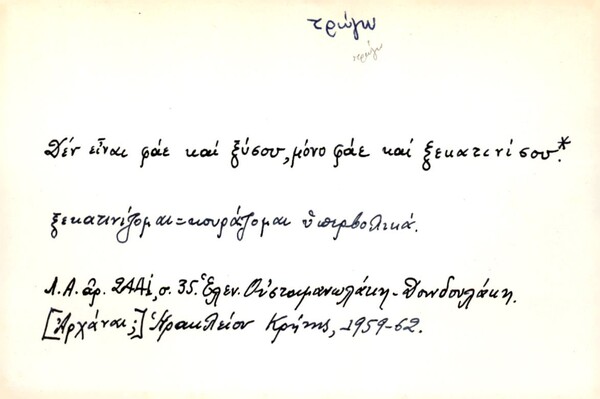 τρώγω
τρώγω
Δέν εἶναι φάε καί ξύσου, μόνο φάε καί ξεκατινίσου.*
ξεκατινίζομαι = κουράζομαι ὑπερβολικά.
Λ.Α. ἀρ. 2441, σ. 35. Ἑλεν. Οὐσταμανωλάκη - Δουνδουλάκη.
[Ἀρχάναι;] Ἡρακλείου Κρήτης, 1959-62.